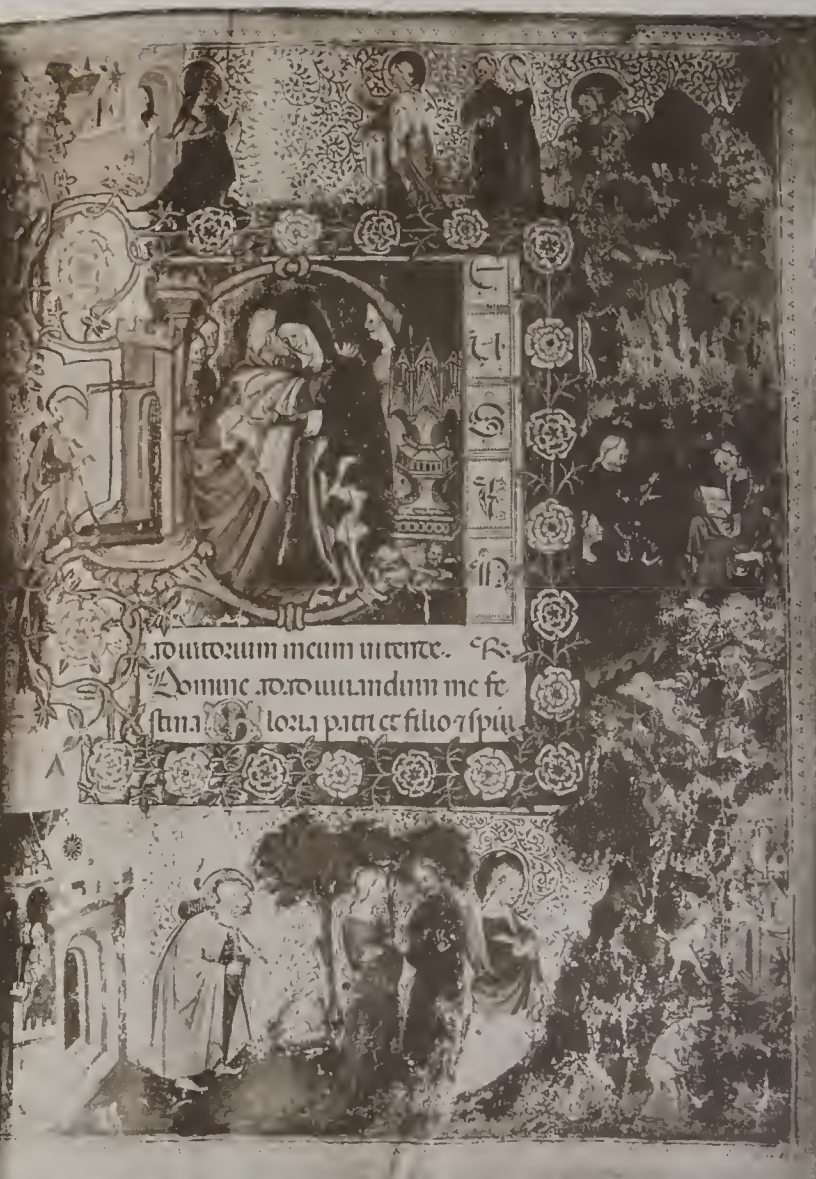 D
E
U
S
I
N
adiutorium meum intende. R
Domine ad adiuuandum me fe
stina Gloria patri et filio ⁊ spiri